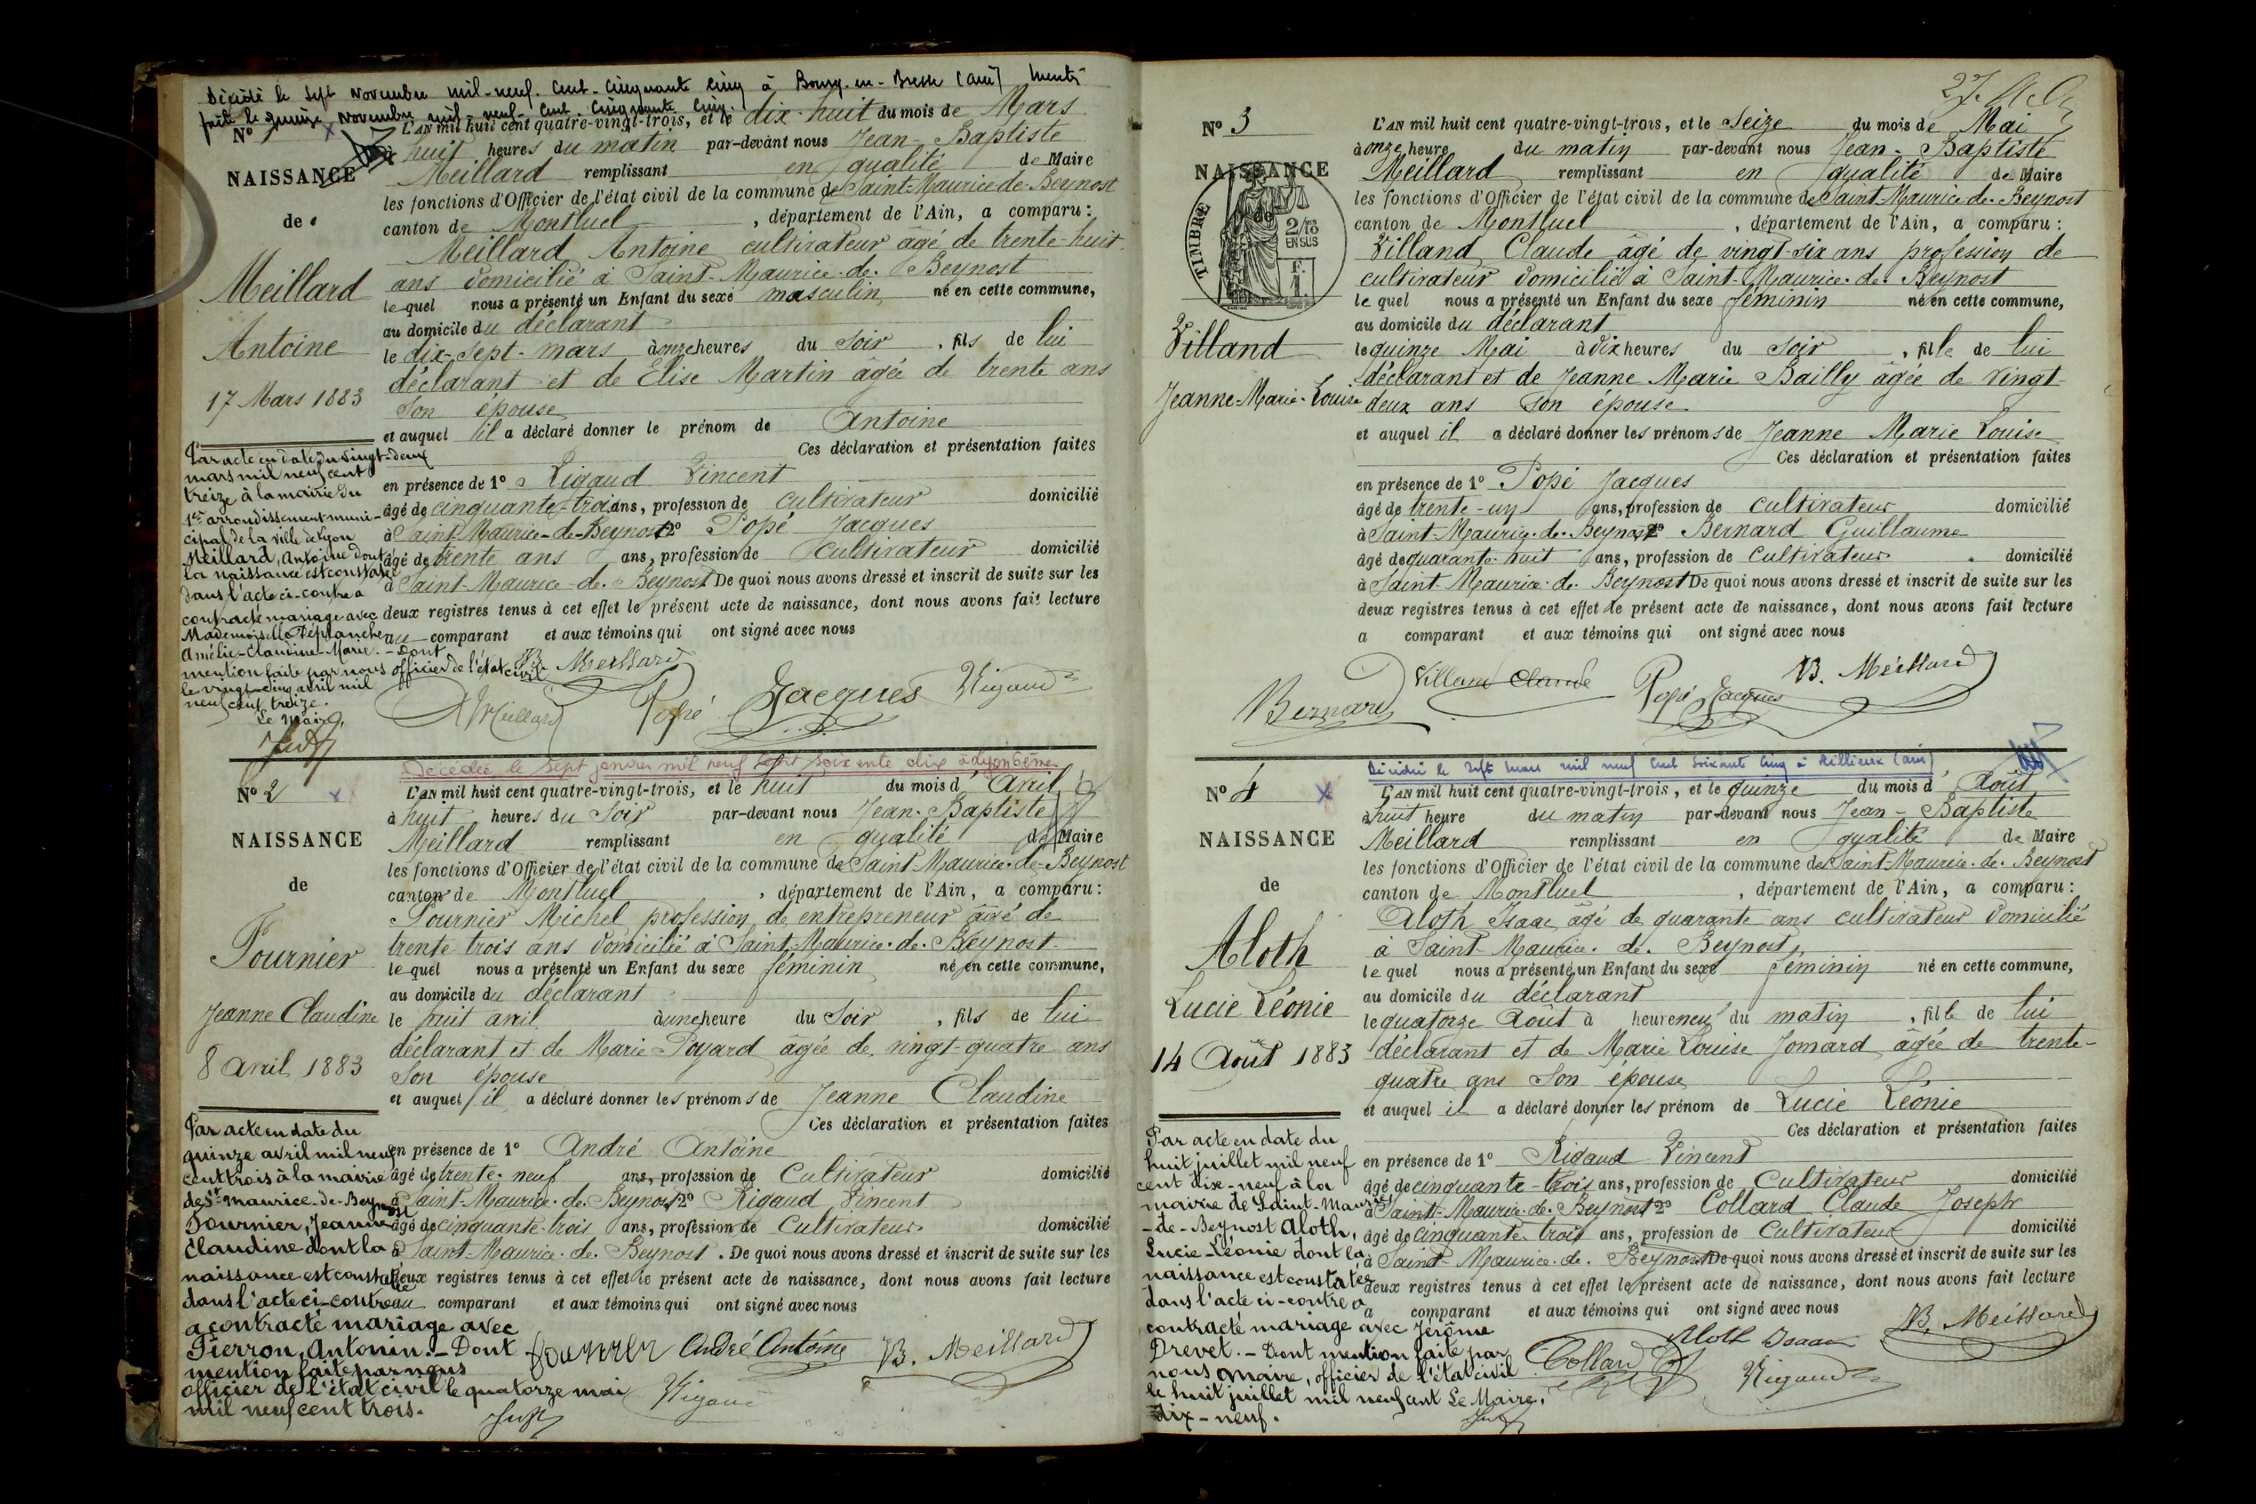 Décédé le sept novembre mil-neuf-cent-cinquante cinq à Bourg-en-Bresse (Ain) Mention
faite le quinze novembre mil-neuf-cent-cinquante cinq.
No 1
L'AN mil huit cent quatre-vingt-trois, et le dix-huit du mois de Mars
à huit heures du matin par-devant nous Jean-Baptiste
NAISSANCE
Meillard remplissant en qualité de Maire
les fonctions d'Officier de l'état civil de la commune de Saint-Maurice-de-Beynost
de
canton de Montluel, département de l'Ain, a comparu :
Meillard Antoine cultivateur âgé de trente-huit
ans domicilié à Saint-Maurice-de-Beynost
Meillard
le quel nous a présenté un Enfant du sexe masculin né en cette commune,
au domicile du déclarant
Antoine
le dix-sept-mars à onze heures du soir, fils de lui
déclarant et de Elise Martin âgée de trente ans
17 Mars 1883
son épouse
et auquel il a déclaré donner le prénom de Antoine
Ces déclaration et présentation faites
en présence de 1º Rigaud Vincent
âgé de cinquante-trois ans, profession de cultivateur domicilié
à Saint-Maurice-de-Beynost 2º Popé Jacques
âgé de trente ans ans, profession de cultivateur domicilié
à Saint-Maurice-de-Beynost De quoi nous avons dressé et inscrit de suite sur les
deux registres tenus à cet effet le présent acte de naissance, dont nous avons fait lecture
au comparant et aux témoins qui ont signé avec nous
Par acte en date du vingt-deux
mars mil neuf cent
treize à la mairie du
1er arrondissement muni-
cipal de la ville de Lyon
Meillard, Antoine dont
la naissance est constatée
dans l'acte ci-contre a
contracté mariage avec
Mademoiselle Déplanche
Amélie-Claudine-Marie. - Dont
mention faite par nous officier de l'état civil
le vingt-cinq avril mil
neuf cent treize.
Le Maire,
JB. Meillard
A Meillard Popé Jacques Rigaud
Décédée le sept janvier mil neuf cent soixante dix à Lyon 6ème
No 2
L'AN mil huit cent quatre-vingt-trois, et le huit du mois d'Avril
à huit heures du soir par-devant nous Jean-Baptiste
NAISSANCE
Meillard remplissant en qualité de Maire
les fonctions d'Officier de l'état civil de la commune de Saint-Maurice-de-Beynost
de
canton de Montluel, département de l'Ain, a comparu :
Fournier Michel profession de entrepreneur âgé de
Fournier
trente trois ans domicilié à Saint-Maurice-de-Beynost
le quel nous a présenté un Enfant du sexe féminin né en cette commune,
au domicile du déclarant
Jeanne Claudine
le huit avril à une heure du soir, fils de lui
déclarant et de Marie Poyard âgée de vingt-quatre ans
8 avril 1883
son épouse
et auquel il a déclaré donner les prénoms de Jeanne Claudine
Ces déclaration et présentation faites
en présence de 1º André Antoine
âgé de trente-neuf ans, profession de cultivateur domicilié
à Saint-Maurice-de-Beynost 2º Rigaud Vincent
âgé de cinquante-trois ans, profession de cultivateur domicilié
à Saint-Maurice-de-Beynost. De quoi nous avons dressé et inscrit de suite sur les
deux registres tenus à cet effet le présent acte de naissance, dont nous avons fait lecture
au comparant et aux témoins qui ont signé avec nous
Par acte en date du
quinze avril mil neuf
cent trois à la mairie
de St-Maurice-de-Beynost
Fournier, Jeanne
Claudine dont la
naissance est constatée
dans l'acte ci-contre
a contracté mariage avec
Pierron, Antonin. - Dont
mention faite par nous
officier de l'état civil le quatorze mai
mil neuf cent trois.
fournier André Antoine JB. Meillard
Rigaud
27.
No 3
L'AN mil huit cent quatre-vingt-trois, et le seize du mois de Mai
à onze heure du matin par-devant nous Jean-Baptiste
NAISSANCE
Meillard remplissant en qualité de Maire
les fonctions d'Officier de l'état civil de la commune de Saint-Maurice-de-Beynost
de
TIMBRE
2/10
EN SUS
canton de Montluel, département de l'Ain, a comparu :
Villand Claude âgé de vingt-six ans profession de
cultivateur domicilié à Saint-Maurice-de-Beynost
le quel nous a présenté un Enfant du sexe féminin né en cette commune,
au domicile du déclarant
Villand
le quinze Mai à dix heures du soir, fille de lui
déclarant et de Jeanne Marie Bailly âgée de vingt-
Jeanne-Marie-Louise
deux ans son épouse
et auquel il a déclaré donner les prénoms de Jeanne Marie Louise
Ces déclaration et présentation faites
en présence de 1º Popé Jacques
âgé de trente-un ans, profession de cultivateur domicilié
à Saint-Maurice-de-Beynost 2º Bernard Guillaume
âgé de quarante-huit ans, profession de cultivateur domicilié
à Saint-Maurice-de-Beynost De quoi nous avons dressé et inscrit de suite sur les
deux registres tenus à cet effet le présent acte de naissance, dont nous avons fait lecture
a comparant et aux témoins qui ont signé avec nous
Bernard Villand Claude Popé Jacques JB. Meillard
Décédée le sept mars mil neuf cent soixante cinq à Rillieux (Ain)
No 4
L'AN mil huit cent quatre-vingt-trois, et le quinze du mois d'Août
à huit heure du matin par-devant nous Jean-Baptiste
NAISSANCE
Meillard remplissant en qualité de Maire
les fonctions d'Officier de l'état civil de la commune de Saint-Maurice-de-Beynost
de
canton de Montluel, département de l'Ain, a comparu :
Aloth Isaac âgé de quarante ans cultivateur domicilié
Aloth
à Saint-Maurice-de-Beynost
le quel nous a présenté un Enfant du sexe féminin né en cette commune,
au domicile du déclarant
Lucie Léonie
le quatorze Août à heure neuf du matin, fille de lui
14 Août 1883
déclarant et de Marie Louise Jomard âgée de trente-
quatre ans son épouse
et auquel il a déclaré donner les prénom de Lucie Léonie
Ces déclaration et présentation faites
en présence de 1º Rigaud Vincent
âgé de cinquante-trois ans, profession de cultivateur domicilié
à Saint-Maurice-de-Beynost 2º Collard Claude Joseph
âgé de cinquante-trois ans, profession de cultivateur domicilié
à Saint-Maurice-de-Beynost De quoi nous avons dressé et inscrit de suite sur les
deux registres tenus à cet effet le présent acte de naissance, dont nous avons fait lecture
a comparant et aux témoins qui ont signé avec nous
Par acte en date du
huit juillet mil neuf
cent dix-neuf à la
mairie de Saint-Maurice
-de-Beynost Aloth,
Lucie-Léonie dont la
naissance est constatée
dans l'acte ci-contre a
contracté mariage avec Jérôme
Drevet. - Dont mention faite par
nous maire, officier de l'état civil
le huit juillet mil neuf cent
dix-neuf.
Le Maire,
Collard Aloth Isaac JB. Meillard
Rigaud